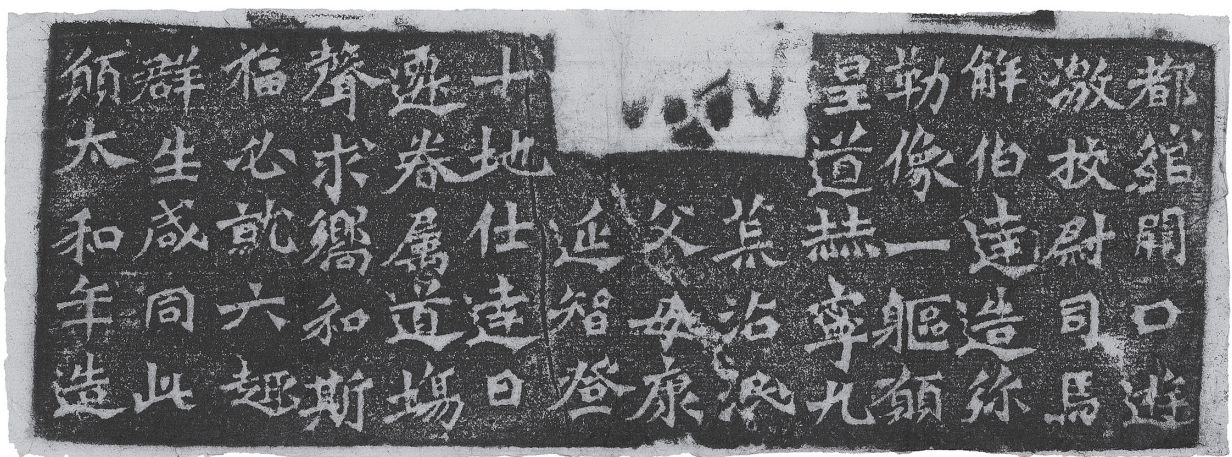 都綰闕口遊
激挍尉司馬
解伯達造弥
勒像一軀願
皇道赫寧九
荒沾泯
父母康
延智登
十地仕達日
遷眷属道塲
聲求嚮和斯
福必就六趣
群生咸同此
願太和年造